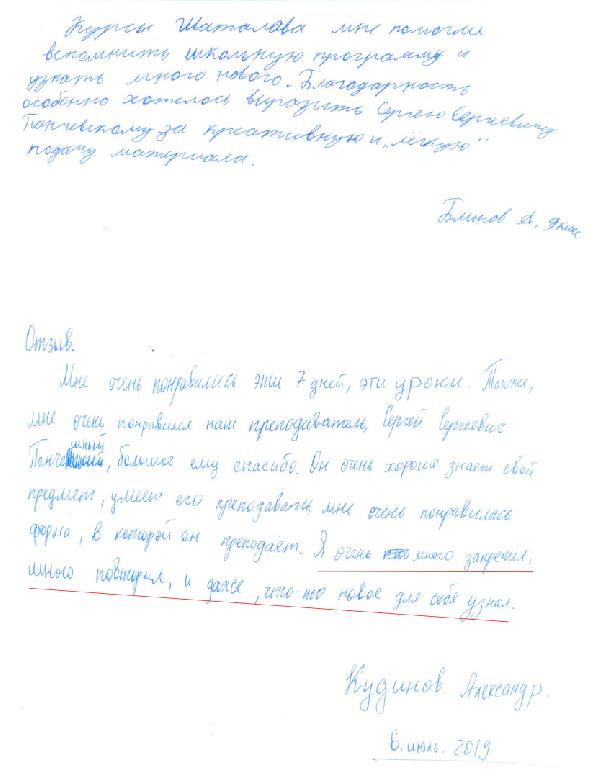 Курсы Шаталова мне помогли
вспомнить школьную программу и
узнать много нового. Благодарность
особенно хотелось выразить Сергею Сергеевичу
Панчевскому за креативную и „лёгкую"
подачу материала.
Блинов А. 9 класс
Отзыв.
Мне очень понравились эти 7 дней, эти уроки. Также,
мне очень понравился наш преподаватель, Сергей Сергеевич
большое ему спасибо. Он очень хорошо знает свой
предмет, умеет его преподавать, мне очень понравилась
форма, в которой он преподаёт. Я очень много закрепил,
много повторил, и даже, что-то новое для себя узнал.
Кудинов Александр.
6. июль. 2019